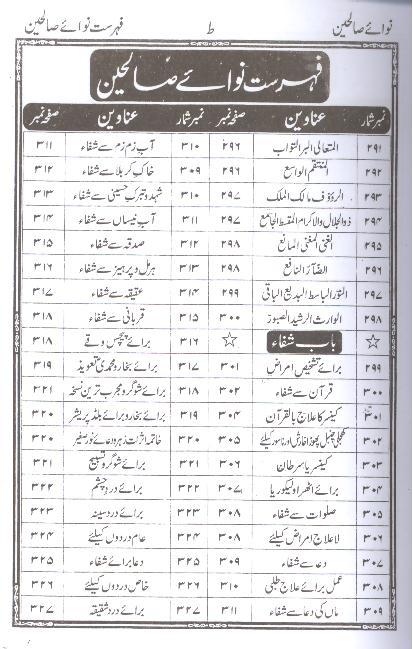 نوائے صالحین ط فہرست نوائے صالحین
فہرست نوائے صالحین
نمبر شمار عناوین صفحہ نمبر نمبر شمار عناوین صفحہ نمبر
۲۹۱ المتعالی البر التواب ۲۹۶ ۳۱۰ آب زم زم سے شفاء ۳۱۱
۲۹۲ المنتقم الواسع ۲۹۶ ۳۰۹ خاک کربلا سے شفاء ۳۱۲
۲۹۳ الرؤوف مالک الملک ۲۹۷ ۳۱۰ شہد و تبرک حسینی سے شفاء ۳۱۳
۲۹۴ ذوالجلال والاکرام المقسط الجامع ۲۹۷ ۳۱۱ آب نیساں سے شفاء ۳۱۴
۲۹۵ الغنی المغنی المانع ۲۹۸ ۳۱۲ صدقہ سے شفاء ۳۱۵
۲۹۶ الضآر النافع ۲۹۸ ۳۱۳ ہرمل و پرہیز سے شفاء ۳۱۶
۲۹۷ النور الباسط البدیع الباقی ۲۹۹ ۳۱۴ عقیقہ سے شفاء ۳۱۷
۲۹۸ الوارث الرشید الصبور ۳۰۰ ۳۱۵ قربانی سے شفاء ۳۱۸
☆ باب شفاء ☆ ۳۱۶ برائے پیچس وقے ۳۱۸
۲۹۹ برائے تشخیص امراض ۳۰۱ ۳۱۷ برائے بخار و محمدی تعویذ ۳۱۹
۳۰۰ قرآن سے شفاء ۳۰۲ ۳۱۸ برائے شوگر و مجرب ترین نسخہ ۳۲۱
۳۰۱ کینسر کا علاج بالقرآن ۳۰۴ ۳۱۹ برائے بخار و برائے بلڈ پریشر ۳۲۰
۳۰۲ کھجلی چنبل پھوڑا خارش اور ناسور کیلئے ۳۰۵ ۳۲۰ خاتمہ اثرات زہر و دعائے نور صغیر ۳۲۰
۳۰۳ کینسر یا سرطان ۳۰۶ ۳۲۱ برائے شوگر و تسبیح ۳۲۱
۳۰۴ برائے اٹھرا و لیکوریا ۳۰۷ ۳۲۲ برائے درد چشم ۳۲۲
۳۰۵ صلوات سے شفاء ۳۰۸ ۳۲۳ برائے درد سینہ ۳۲۳
۳۰۶ لاعلاج امراض کیلئے ۳۰۸ ۳۲۴ عام دردوں کیلئے ۳۲۴
۳۰۷ دعا سے شفاء ۳۰۹ ۳۲۵ دعا برائے شفاء ۳۲۵
۳۰۸ عمل برائے علاج طلبی ۳۱۰ ۳۲۶ خاص دردوں کیلئے ۳۲۶
۳۰۹ ماں کی دعا سے شفاء ۳۱۱ ۳۲۷ برائے درد شقیقہ ۳۲۷